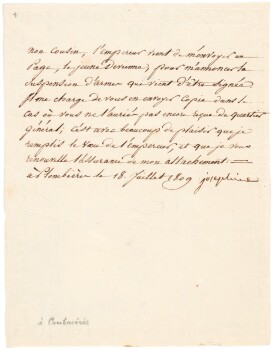 mon Cousin, l'Empereur vient de m'envoyer un
Page, le jeune pour m'annoncer la
suspension d'armes que vient d'être signée
il me charge de vous en envoyer Copie dans le
cas où vous ne l'auriez pas encore reçue du quartier
général; c'est avec beaucoup de plaisir que je
remplis le vœu de l'empereur, et que je vous
renouvelle l'assurance de mon attachement =
à Plombières le 18. Juillet 1809 joséphine
à Cambacérès